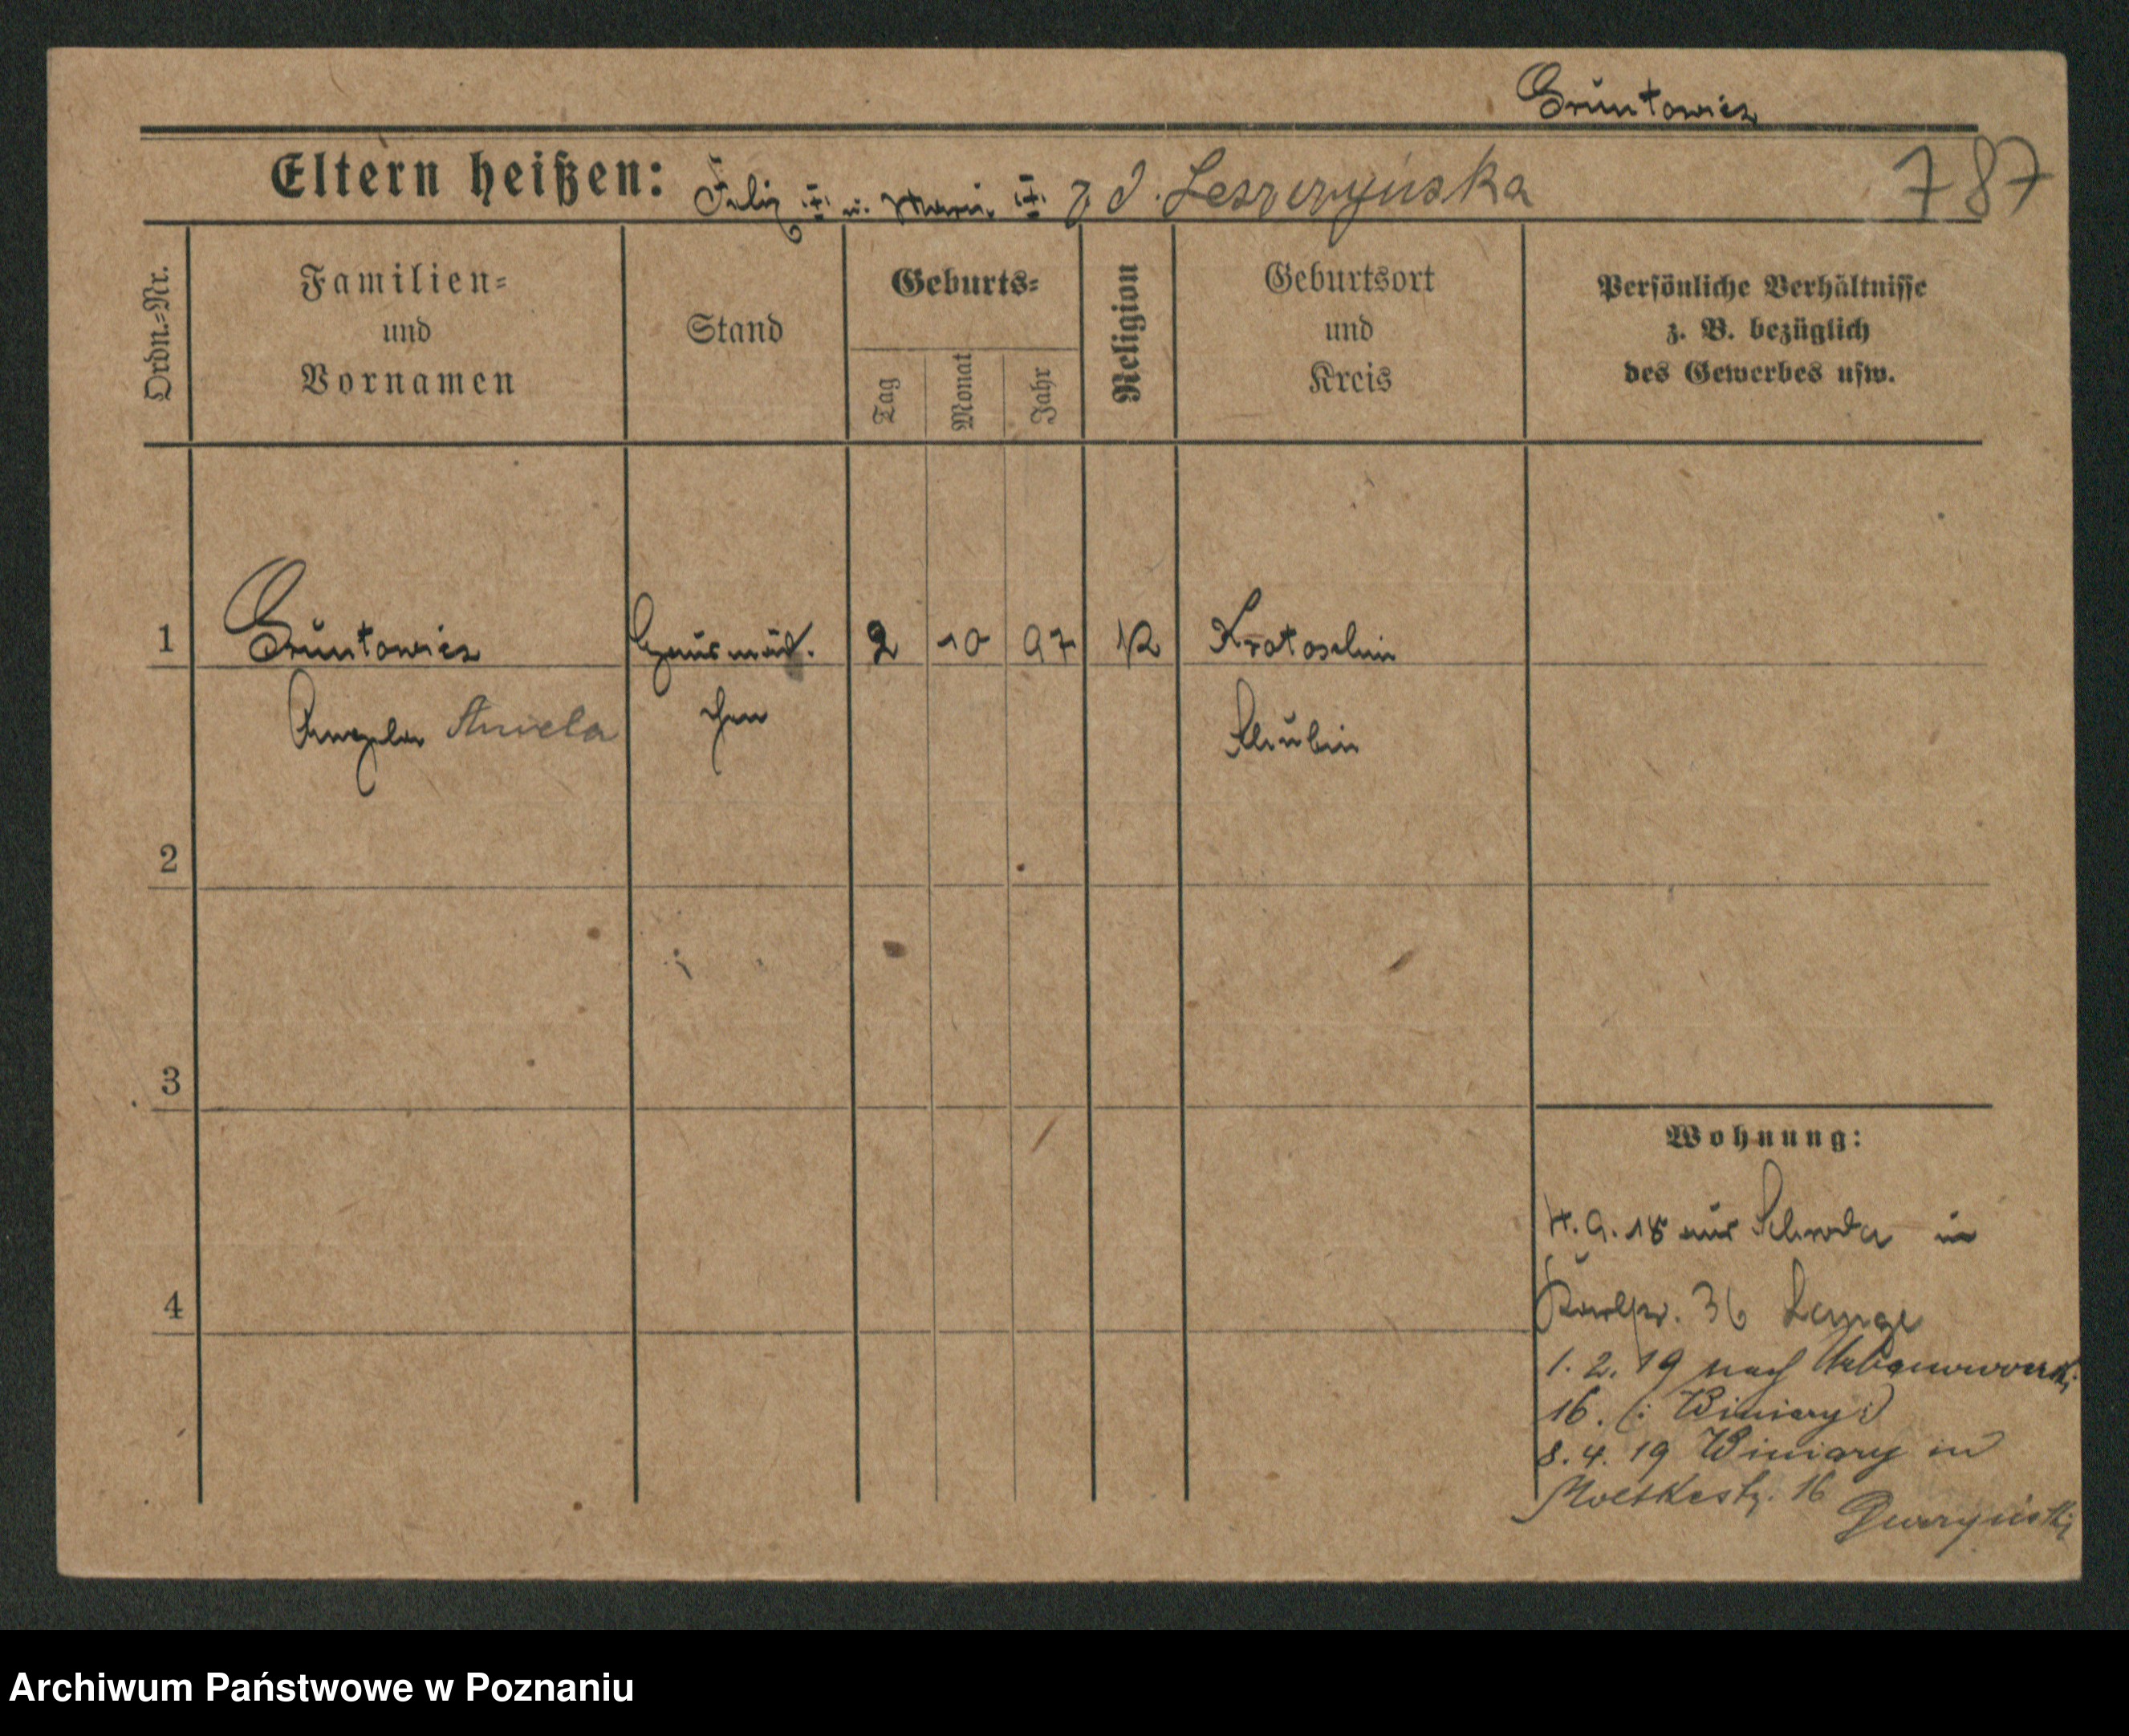 Gruntowicz
Eltern heißen: Felix u. Maria z d. Leszczyńska 787
Ordn.=Nr.
Familien=
und
Vornamen
Stand
Geburts=
Tag
Monat
Jahr
Religion
Geburtsort
und
Kreis
Persönliche Verhältnisse
z. B. bezüglich
des Gewerbes usw.
1 Gruntowicz Hausmäd. 2 10 97 K Krotoschin
Angela Aniela chen Schubin
2
3
4
Wohnung:
4.9.18 aus Schroda in
36 Lange
1.2.19 nach
16. (: Winiary :)
8.4.19 Winiary in
Moltkestr. 16
Archiwum Państwowe w Poznaniu